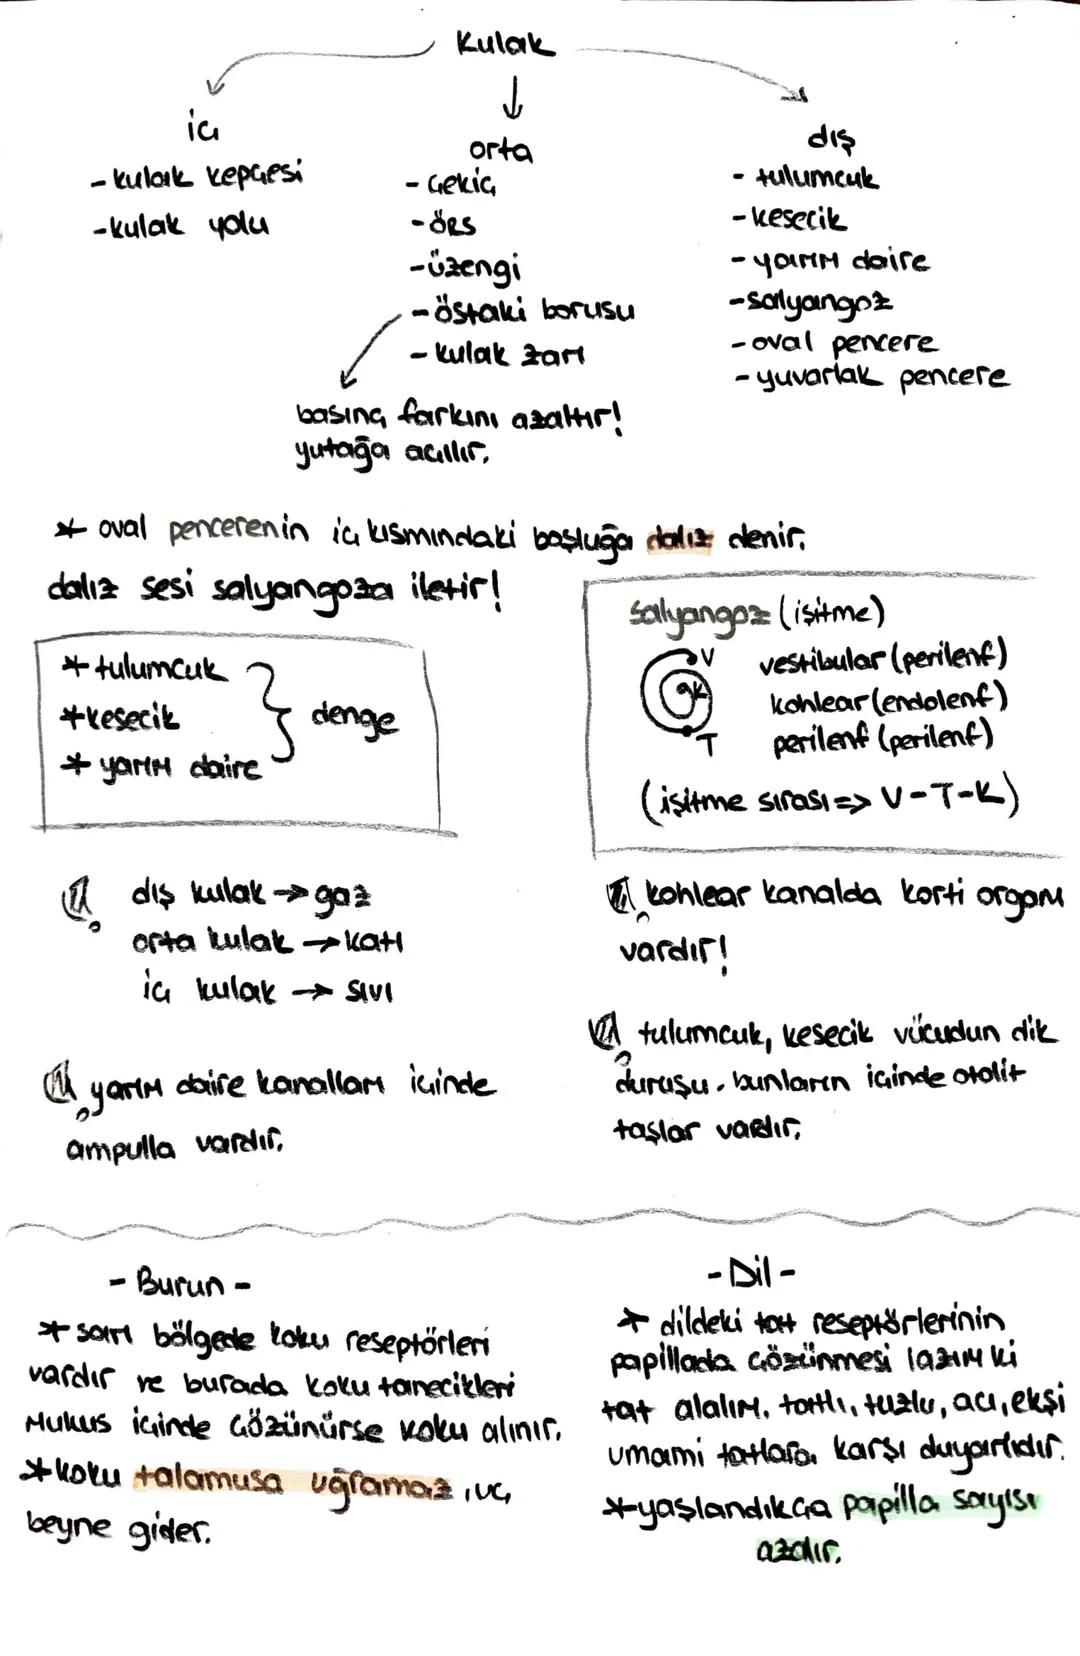 Kulak
iç
- kulak kepçesi
- kulak yolu
orta
- çekiç
- örs
- üzengi
- östaki borusu
- kulak zarı
basınç farkını azaltır!
yutağa açılır.
dış
- tulumcuk
- kesecik
- yarım daire
- salyangoz
- oval pencere
- yuvarlak pencere
* oval pencerenin iç kısmındaki boşluğa dalız denir.
dalız sesi salyangoza iletir!
* tulumcuk
* kesecik
* yarım daire
denge
salyangoz (işitme)
V
K
T
vestibular (perilenf)
kohlear (endolenf)
perilenf (perilenf)
(işitme sırası => V-T-K)
dış kulak → gaz
orta kulak → katı
iç kulak → sıvı
kohlear kanalda korti organı
vardır!
yarım daire kanalları içinde
ampulla vardır.
tulumcuk, kesecik vücudun dik
duruşu. bunların içinde otolit
taşlar vardır.
- Burun -
* sarı bölgede koku reseptörleri
vardır ve burada koku tanecikleri
mukus içinde çözünürse koku alınır.
* koku talamusa uğramaz, uç
beyne gider.
- Dil -
* dildeki tat reseptörlerinin
papillada çözünmesi lazım ki
tat alalım. tatlı, tuzlu, acı, ekşi
umami tatlara karşı duyarlıdır.
* yaşlandıkça papilla sayısı
azalır.